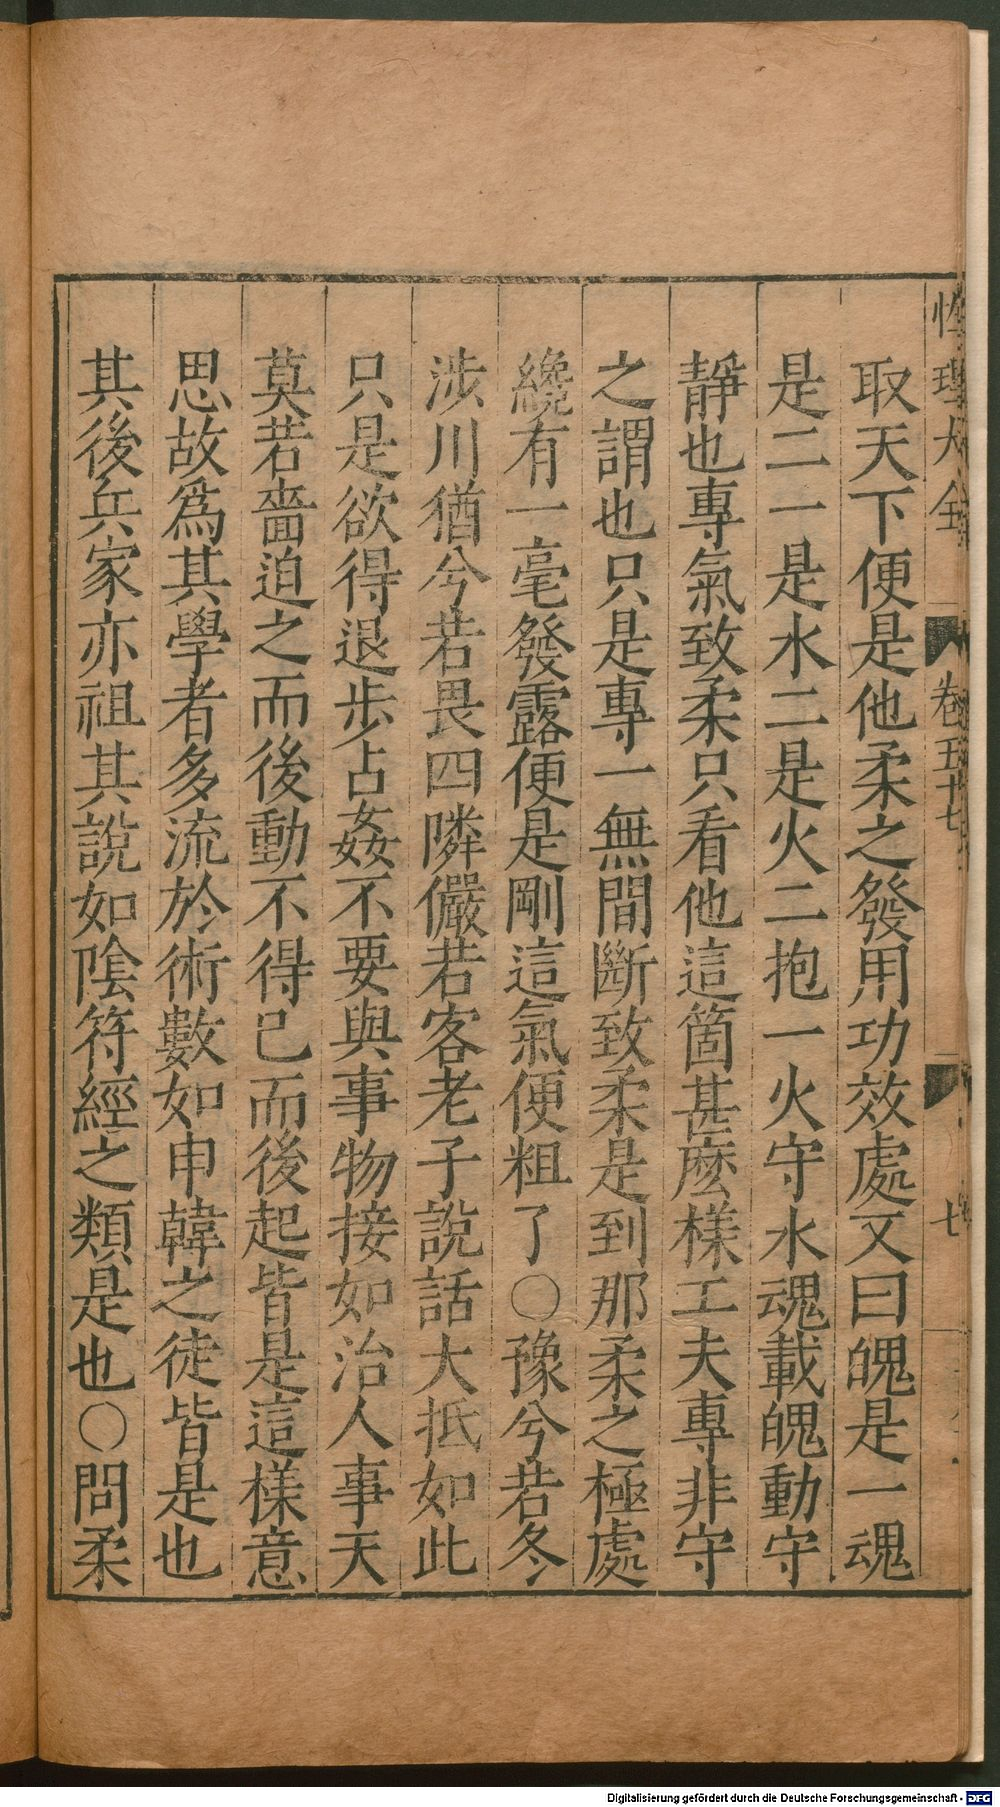 性理大全 卷五十七 七
取天下便是他柔之發用功效處又曰魄是一魂
是二一是水二是火二抱一火守水魂載魄動守
靜也專氣致柔只看他這箇甚麽樣工夫專非守
之謂也只是專一無間斷致柔是到那柔之極處
纔有一毫發露便是剛這氣便粗了○豫兮若冬
涉川猶兮若畏四隣儼若客老子說話大抵如此
只是欲得退步占姦不要與事物接如治人事天
莫若嗇迫之而後動不得已而後起皆是這樣意
思故爲其學者多流於術數如申韓之徒皆是也
其後兵家亦祖其說如陰符經之類是也○問柔
Digitalisierung gefördert durch die Deutsche Forschungsgemeinschaft - DFG